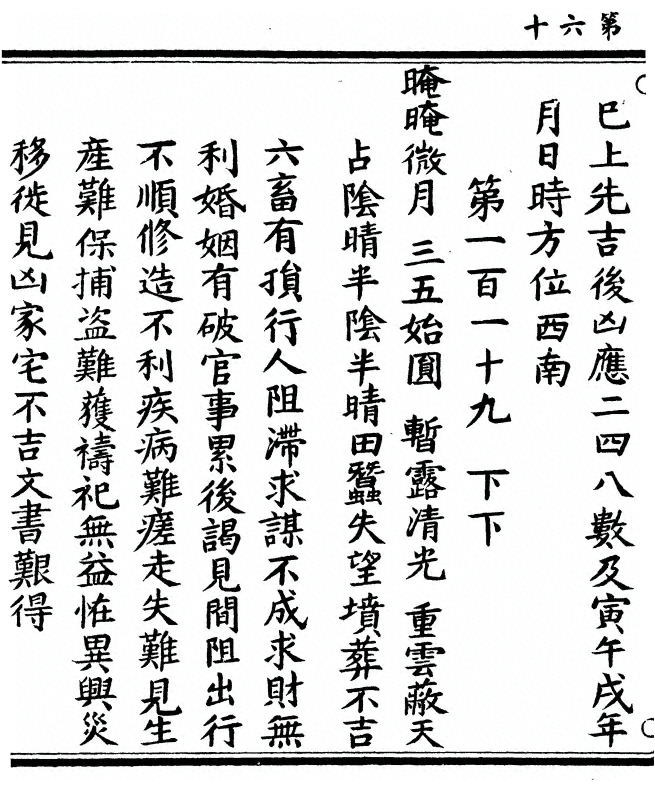 第六十
巳上先吉後凶應二四八數及寅午戌年
月日時方位西南
第一百一十九 下下
晻晻微月 三五始圓 暫露清光 重雲蔽天
占陰晴半陰半晴田蠶失望墳葬不吉
六畜有損行人阻滯求謀不成求財無
利婚姻有破官事累後謁見間阻出行
不順修造不利疾病難瘥走失難見生
產難保捕盗難獲禱祀無益恠異興災
移徙見凶家宅不吉文書艱得